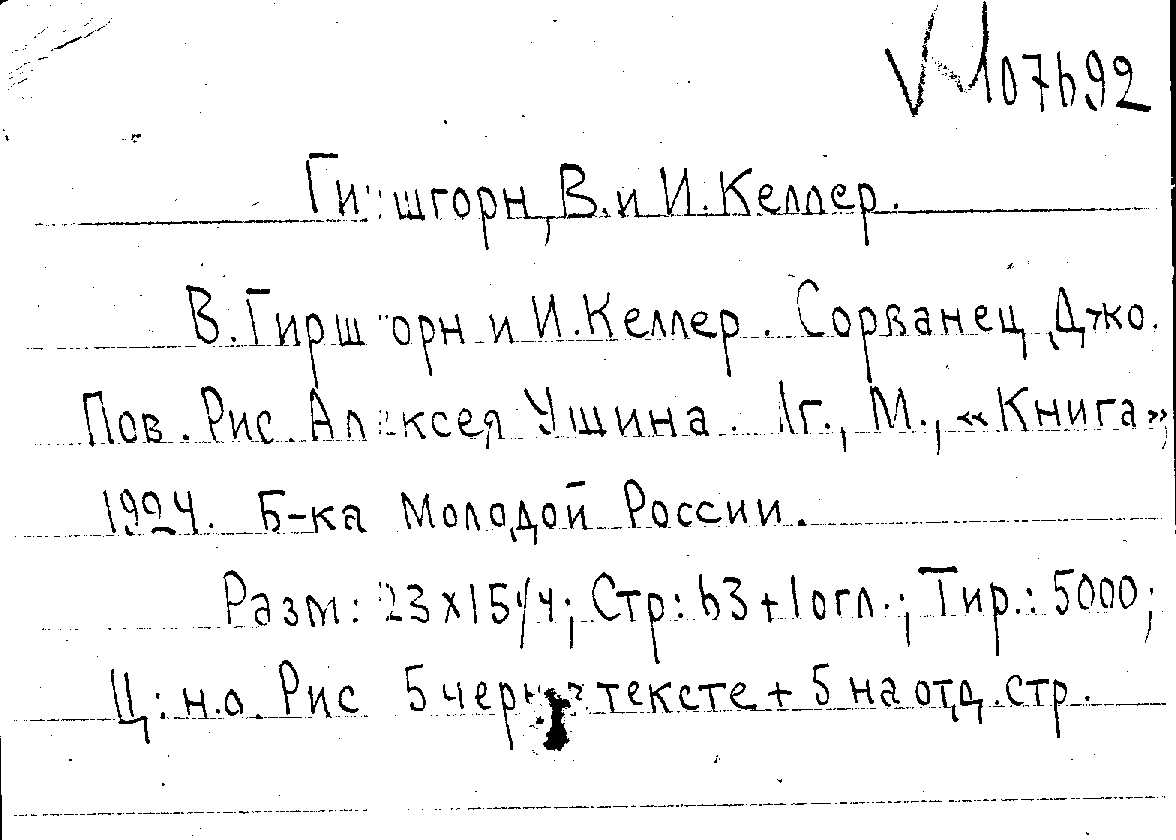 107692
Гиршгорн, В. и И. Келлер.
В. Гиршгорн и И. Келлер. Сорванец Джо.
Пов. Рис. Алексея Ушина. Лг., М., «Книга»,
1924. Б-ка Молодой России.
Разм: 23x15 1/4; Стр: 63+1 огл.; Тир.: 5000;
Ц: н.о. Рис 5 черн тексте + 5 на отд. стр.